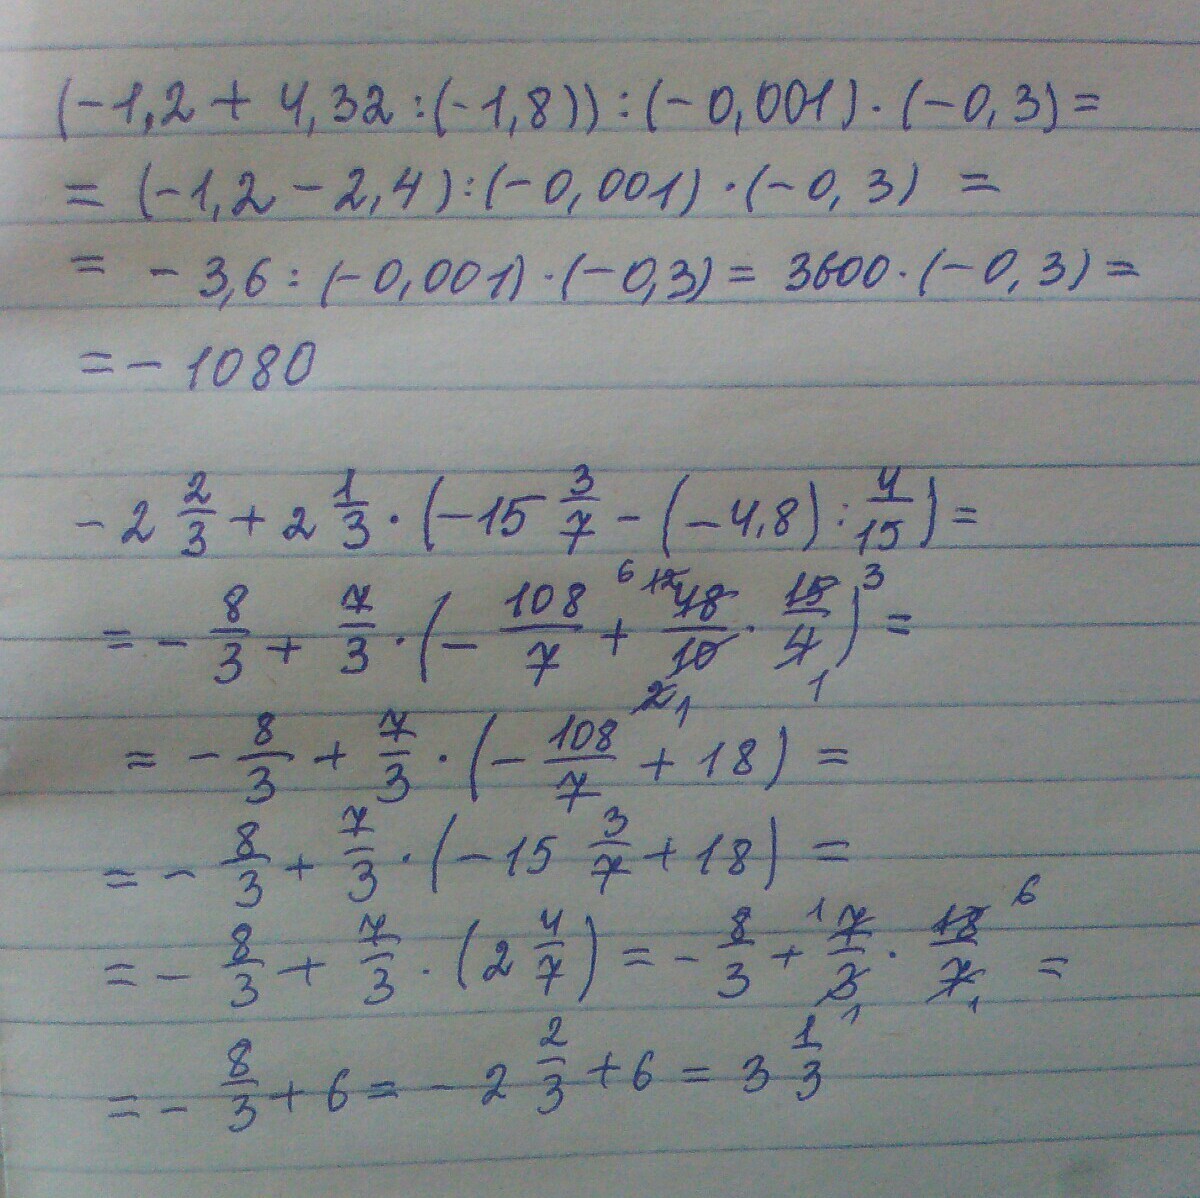 (-1,2 + 4,32 : (-1,8)) : (-0,001) · (-0,3) =
= (-1,2 - 2,4) : (-0,001) · (-0,3) =
= - 3,6 : (-0,001) · (-0,3) = 3600 · (-0,3) =
= - 1080
- 2 2/3 + 2 1/3 · (-15 3/7 - (-4,8) : 4/15) =
= - 8/3 + 7/3 · (- 108/7 + 6 12 48/10 2 1 · 15/4 3 1) =
= - 8/3 + 7/3 · (- 108/7 + 18) =
= - 8/3 + 7/3 · (-15 3/7 + 18) =
= - 8/3 + 7/3 · (2 4/7) = - 8/3 + 1 7/3 1 · 18/7 6 1 =
= - 8/3 + 6 = - 2 2/3 + 6 = 3 1/3